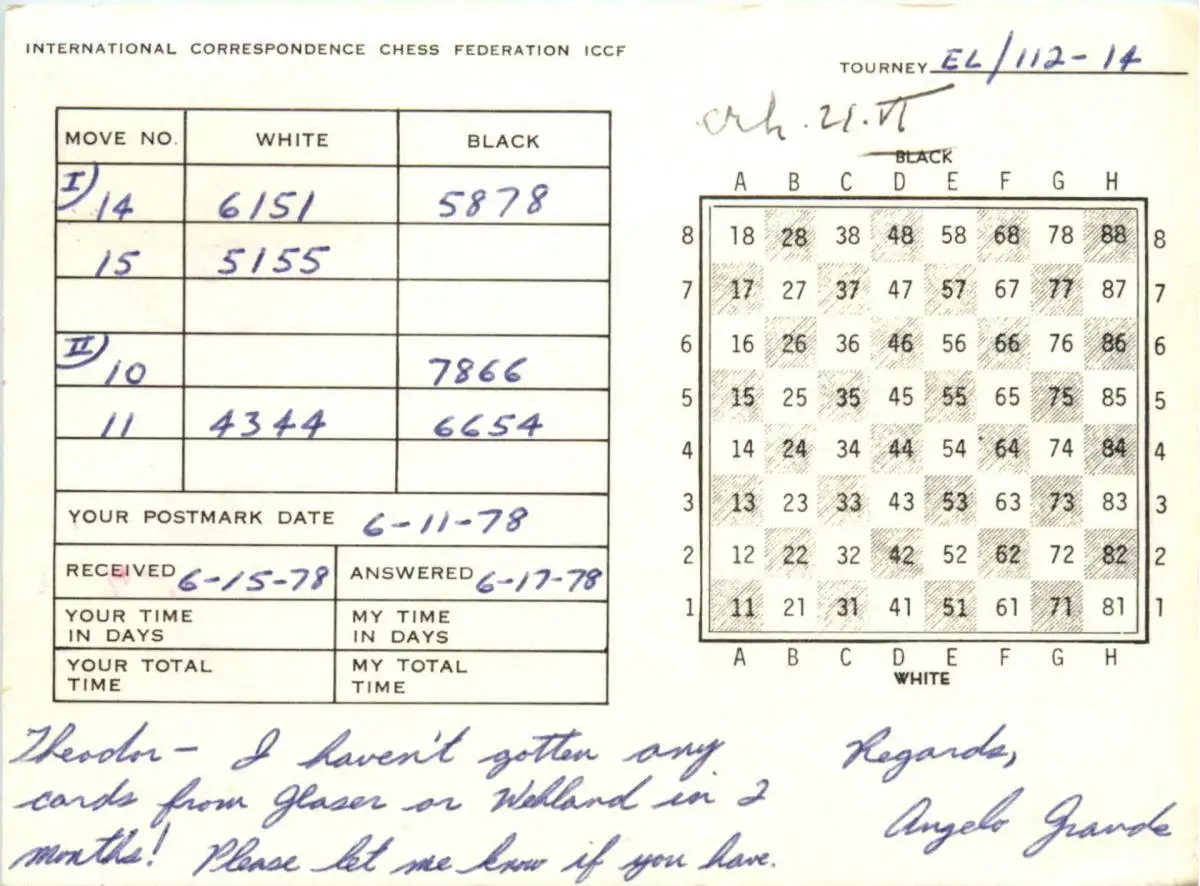 INTERNATIONAL CORRESPONDENCE CHESS FEDERATION ICCF
TOURNEY EL/112-14
21.VI
MOVE NO. WHITE BLACK
I) 14 6151 5878
15 5155
II) 10 7866
11 4344 6654
YOUR POSTMARK DATE 6-11-78
RECEIVED 6-15-78 ANSWERED 6-17-78
YOUR TIME IN DAYS MY TIME IN DAYS
YOUR TOTAL TIME MY TOTAL TIME
BLACK
A B C D E F G H
8 18 28 38 48 58 68 78 88 8
7 17 27 37 47 57 67 77 87 7
6 16 26 36 46 56 66 76 86 6
5 15 25 35 45 55 65 75 85 5
4 14 24 34 44 54 64 74 84 4
3 13 23 33 43 53 63 73 83 3
2 12 22 32 42 52 62 72 82 2
1 11 21 31 41 51 61 71 81 1
A B C D E F G H
WHITE
Theodor - I haven't gotten any
cards from Glaser or Wehland in 2
months! Please let me know if you have.
Regards,
Angelo Grande